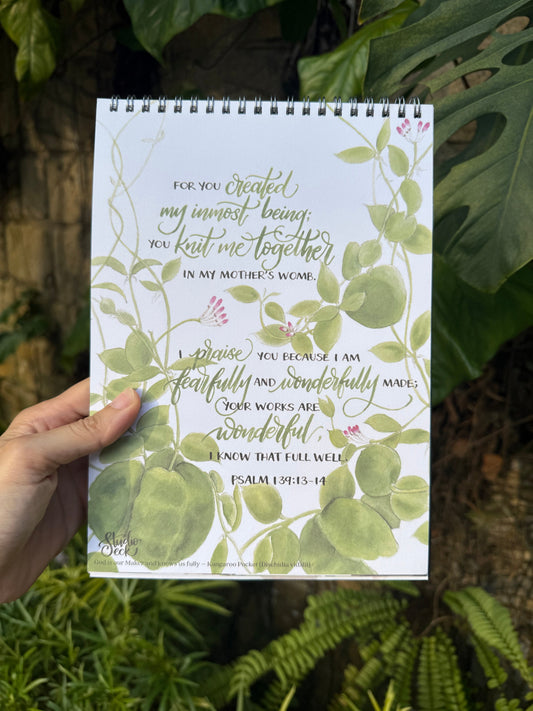 FOR YOU created
my inmost being;
YOU knit me together
IN MY MOTHER'S WOMB.
I praise YOU BECAUSE I AM
fearfully AND wonderfully MADE;
YOUR WORKS ARE
wonderful,
I KNOW THAT FULL WELL.
PSALM 139:13-14
Studio
eek
God is our Maker and knows us fully – Kangaroo Pocket (Dischidia